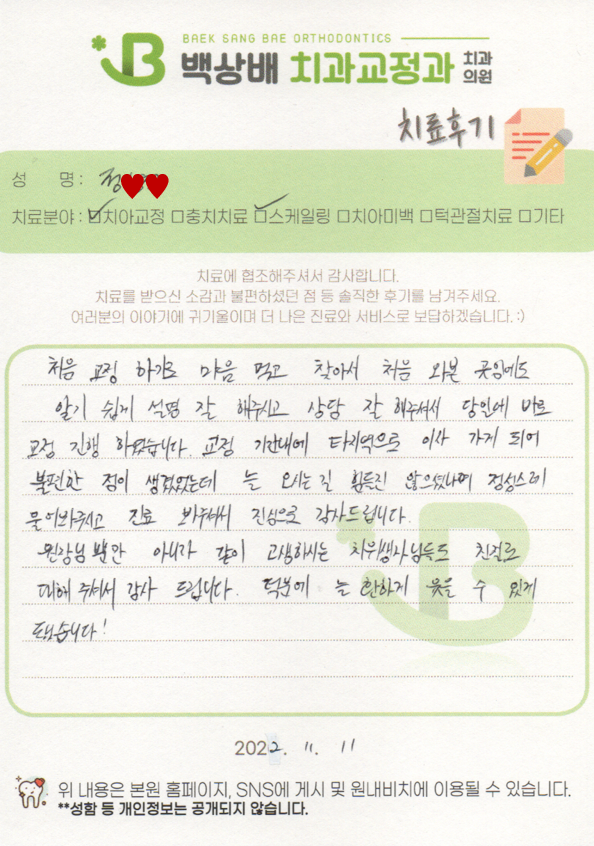 BAEK SANG BAE ORTHODONTICS
백상배 치과교정과 치과의원
치료후기
성 명 : 정
치료분야 : ☑치아교정 □충치치료 ☑스케일링 □치아미백 □턱관절치료 □기타
치료에 협조해주셔서 감사합니다.
치료를 받으신 소감과 불편하셨던 점 등 솔직한 후기를 남겨주세요.
여러분의 이야기에 귀기울이며 더 나은 진료와 서비스로 보답하겠습니다. :)
처음 교정 하기로 마음 먹고 찾아서 처음 와본 곳임에도
알기 쉽게 설명 잘 해주시고 상담 잘 해주셔서 당일에 바로
교정 진행 하였습니다. 교정 기간내에 타지역으로 이사 가게 되어
불편한 점이 생겼었는데 늘 오시는길 힘들진 않으셨냐며 정성스레
물어봐주시고 진료 봐주셔서 진심으로 감사드립니다.
원장님 뿐만 아니라 같이 고생하시는 치위생사님들도 친절로
대해 주셔서 감사 드립니다. 덕분에 늘 환하게 웃을 수 있게
됐습니다!
2022. 11. 11
위 내용은 본원 홈페이지, SNS에 게시 및 원내비치에 이용될 수 있습니다.
**성함 등 개인정보는 공개되지 않습니다.